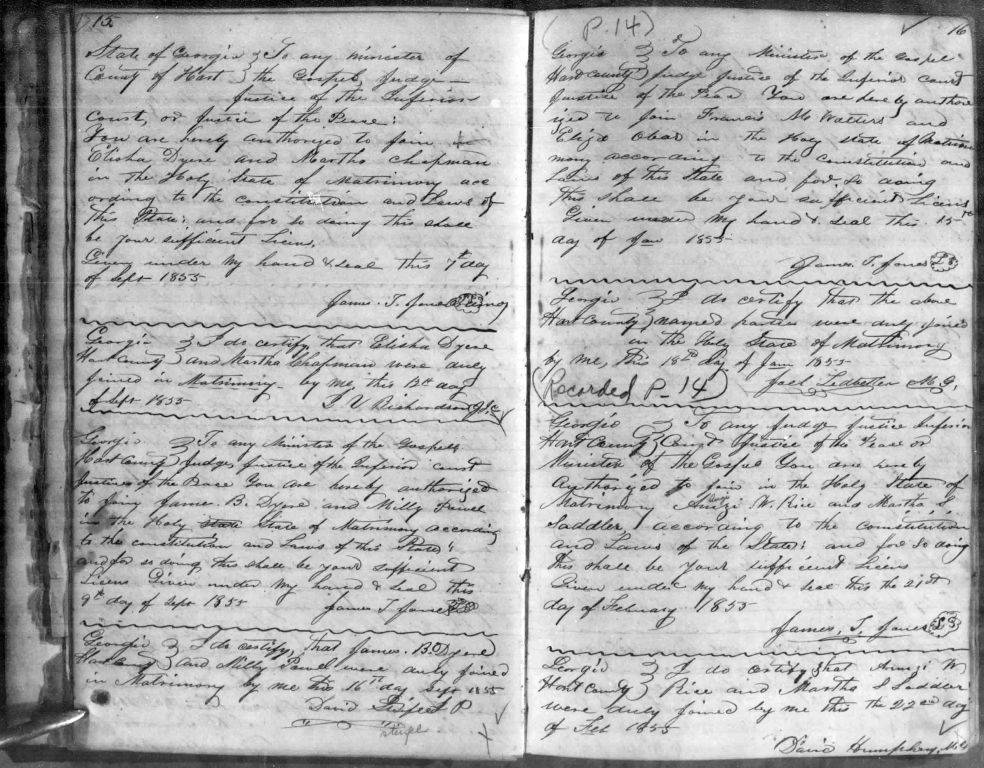 15.
State of Georgia } To any minister of
County of Hart } the Gospel, Judge —
Justice of the Inferior
Court, or Justice of the Peace:
You are hereby authorized to join
Elisha Dyere and Martha Chapman
in the Holy State of Matrimony acc
ording to the constitution and Laws of
this State: and for so doing this shall
be your sufficient Licens,
Given under my hand & seal this 7th day
of Sept 1855
James. T. Jones
Georgia } I do certify, that Elisha Dyere
Hart County } and Martha Chapman were duly
joined in Matrimony by me, this 13th day
of Sept 1855
Richardson
Georgia } To any Minister of the Gospel
Hart County } Judge, Justice of the Inferior court
Justice of the Peace You are hereby authorized
to join James B. Dyere and Milly
in the Holy state State of Matrimony according
to the constitution and Laws of this State:
and for so doing this shall be your sufficient
Licens Given under my hand & seal this
9th day of Sept 1855 James T. Jones
Georgia } I do certify, that James. B. Dyere
Hart County } and Milly were duly joined
in Matrimony by me this 16th day Sept 1855
David
(P. 14)
16
Georgia } To any Minister of the Gospel
Hart County } Judge Justice of the Inferior court
Justice of the Peace You are hereby author
ized to join Francis M Walters and
Eliza Obar in the Holy state of Matri
mony according to the constitution and
Laws of this State and for so doing
this shall be your sufficient Licens
Given under my hand & seal this 15th
day of Jan 1855
James. T. Jones LS
Georgia } I do certify that the above
Hart County } named parties were duly joined
in the Holy State of Matrimony
by me, this 18th day of Jan 1855
(Recorded P-14) Joel Ledbetter M. G.
Georgia } To any Judge Justice Inferior
Hart County } Court Justice of the Peace or
Minister of the Gospel You are hereby
Authorized to join in the Holy State of
Matrimony W. Rice and Martha S
Saddler, according to the constitution
and Laws of the State: and for so doing
this shall be your sufficient Licens
Given under my hand & seal this the 21st
day of February 1855
James, T. Jones LS
Georgia } I do certify that W
Hart County } Rice and Martha S Saddler
were duly joined by me this the 22nd day
of Feb 1855
David Humphrey, M.G.